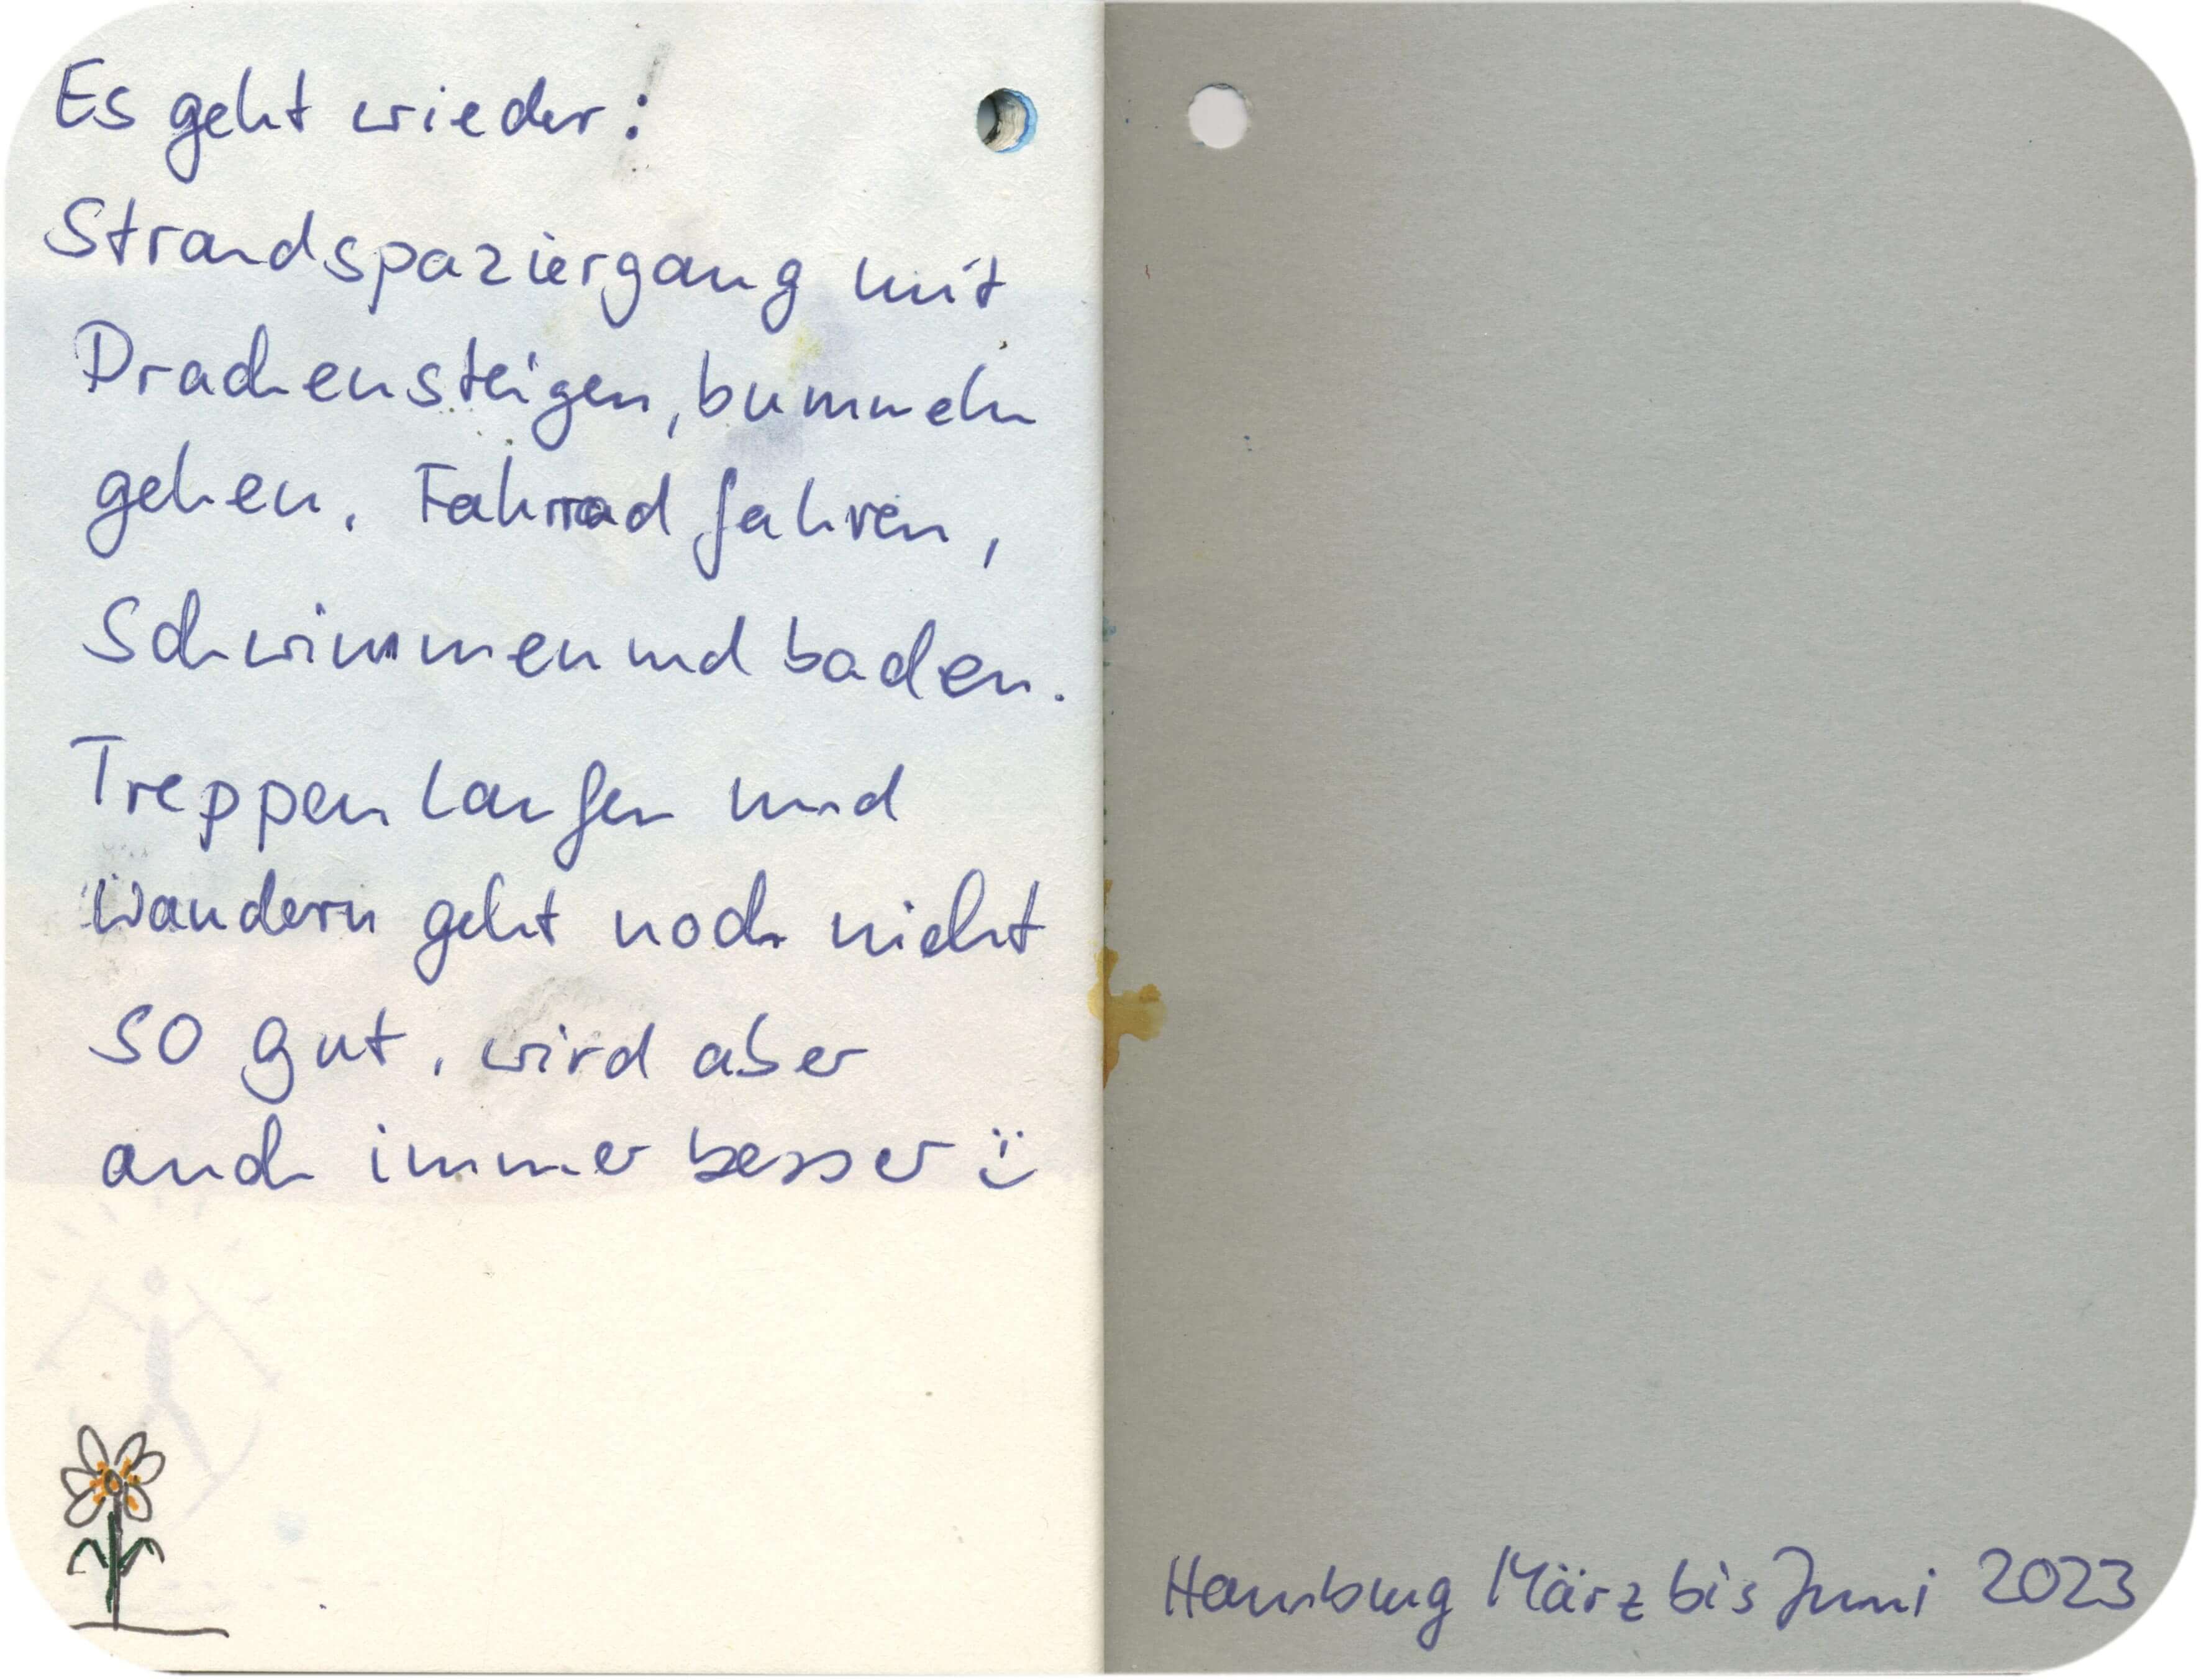 Es geht wieder:
Strandspaziergang mit
Drachensteigen, bummeln
gehen, Fahrrad fahren,
Schwimmen und baden.
Treppen laufen und
Wandern geht noch nicht
so gut, wird aber
auch immer besser :)
Hamburg März bis Juni 2023